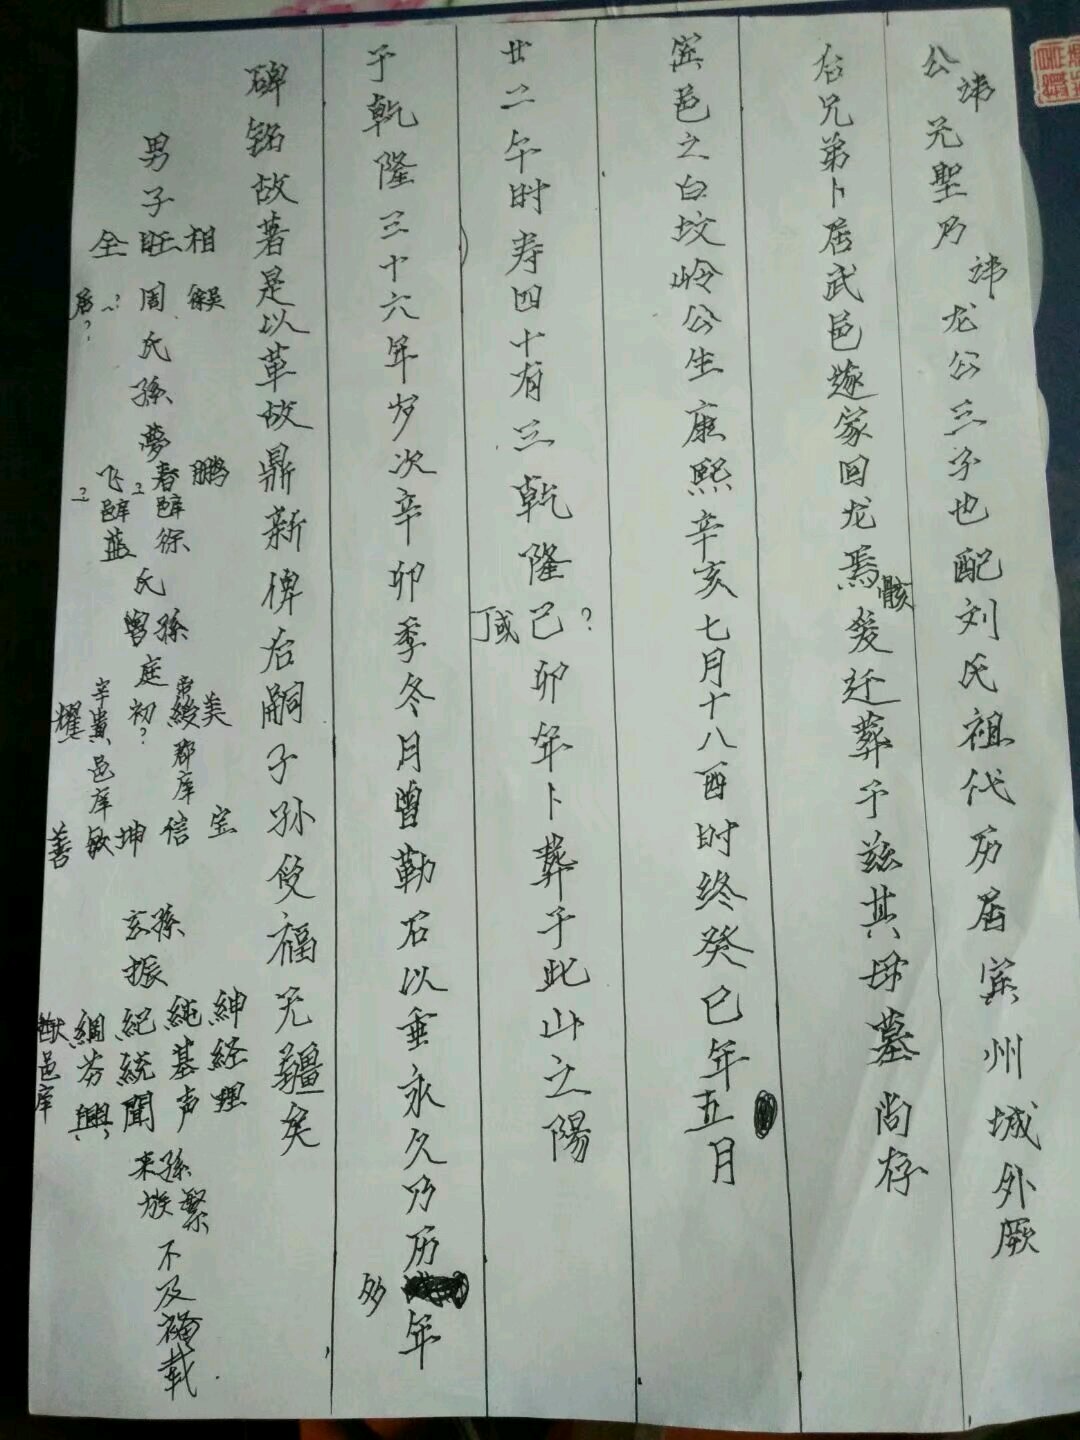 公讳元聖乃讳龙公三子也配刘氏祖代历居宾州城外厥
后兄弟卜居武邑遂家回龙焉骸爰迁葬于兹其母墓尚存
宾邑之白坟岭公生康熙辛亥七月十八酉时终癸巳年五月
廿二午时寿四十有三乾隆己?卯年卜葬于此山之陽
丁或
于乾隆三十六年岁次辛卯季冬月曽勒石以垂永久乃历年
多
碑铭故著是以革故鼎新俾后嗣子孙受福无疆矣
男子
相旺全
吴徐周?居?
氏孫夢
鹏春飞
庠徐邑庠蓝
氏
曽孫庭
美绶初?貴耀
郡庠邑庠
宝信坤敏善
玄孫振
紳純紀綱猷邑庠
経基統芬
理声聞興
来孫繁族不及备载